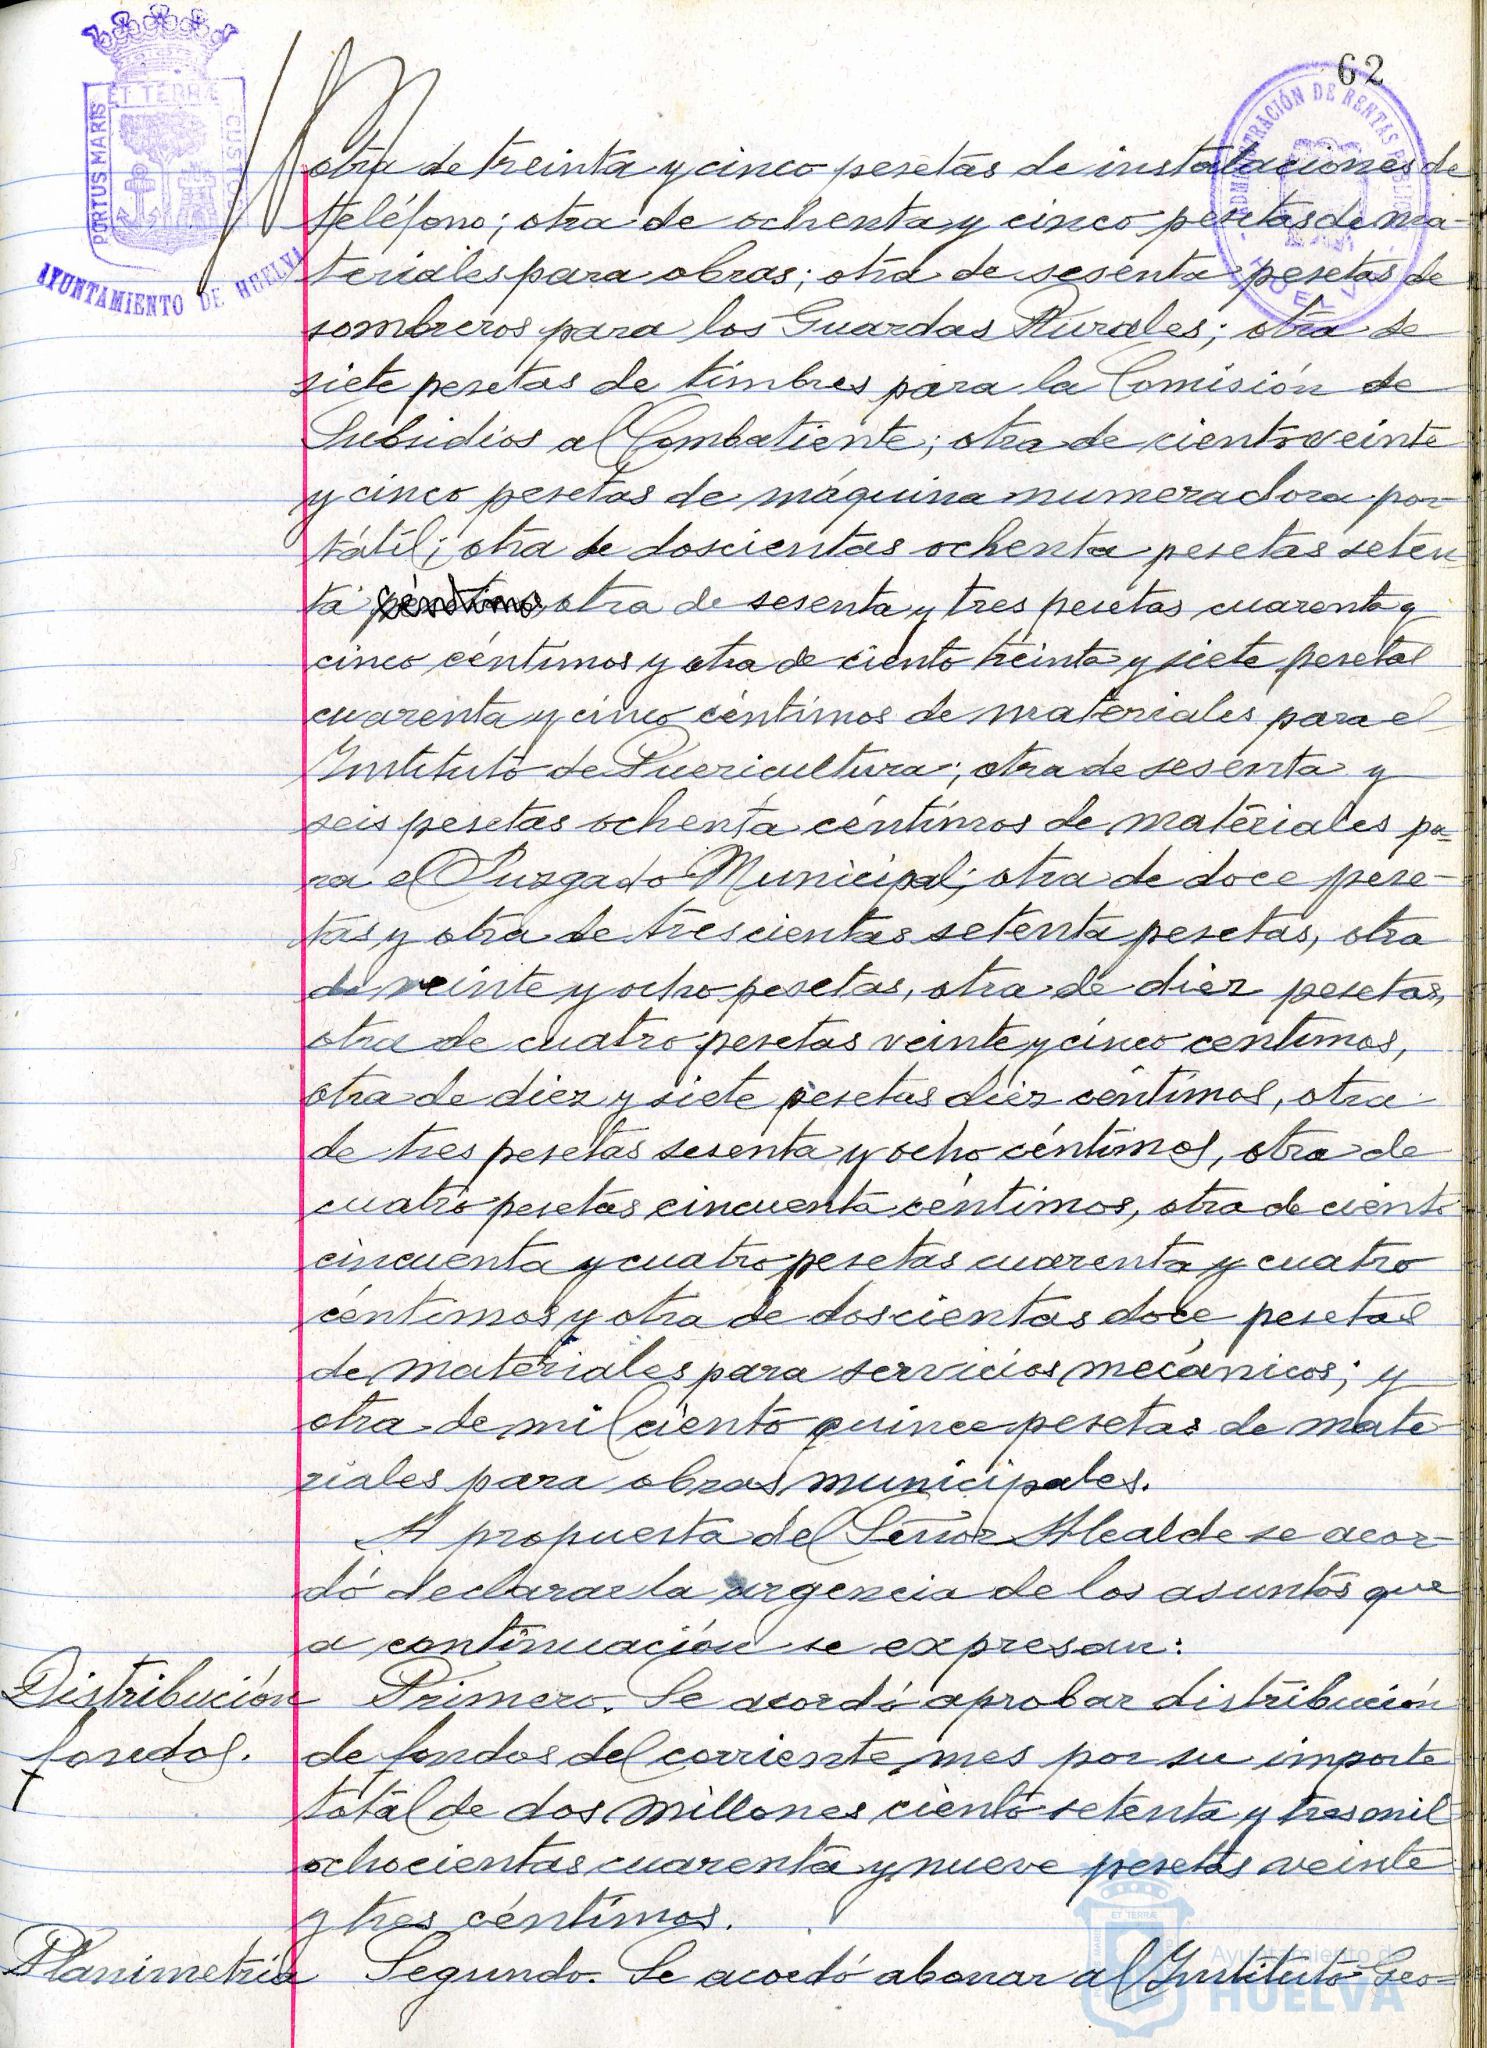 62
ET TERRÆ
PORTUS MARIS
CUSTO
AYUNTAMIENTO DE HUELVA
ADMINISTRACIÓN DE RENTAS PUBLICAS
HUELVA
otra de treinta y cinco pesetas de instalaciones de
teléfono; otra de ochenta y cinco pesetas de ma-
teriales para obras; otra de sesenta pesetas de
sombreros para los Guardas Rurales; otra de
siete pesetas de timbres para la Comisión de
Subsidios al Combatiente; otra de ciento veinte
y cinco pesetas de máquina numeradora por-
tátil; otra de doscientas ochenta pesetas seten-
ta céntimos, otra de sesenta y tres pesetas cuarenta y
cinco céntimos y otra de ciento treinta y siete pesetas
cuarenta y cinco céntimos de materiales para el
Instituto de Puericultura; otra de sesenta y
seis pesetas ochenta céntimos de materiales pa-
ra el Juzgado Municipal; otra de doce pese-
tas y otra de trescientas setenta pesetas, otra
de veinte y ocho pesetas, otra de diez pesetas,
otra de cuatro pesetas veinte y cinco centimos,
otra de diez y siete pesetas diez céntimos, otra
de tres pesetas sesenta y ocho céntimos, otra de
cuatro pesetas cincuenta céntimos, otra de ciento
cincuenta y cuatro pesetas cuarenta y cuatro
céntimos y otra de doscientas doce pesetas
de materiales para servicios mecánicos; y
otra de mil ciento quince pesetas de mate-
riales para obras municipales.
A propuesta del Señor Alcalde se acor-
dó declarar la urgencia de los asuntos que
a continuación se expresan:
Distribución Primero. Se acordó aprobar distribución
fondos. de fondos del corriente mes por su importe
total de dos millones ciento setenta y tres mil
ochocientas cuarenta y nueve pesetas veinte
y tres céntimos.
Planimetría Segundo. Se acordó abonar al Instituto Geo-
ET TERRÆ
Ayuntamiento de
HUELVA